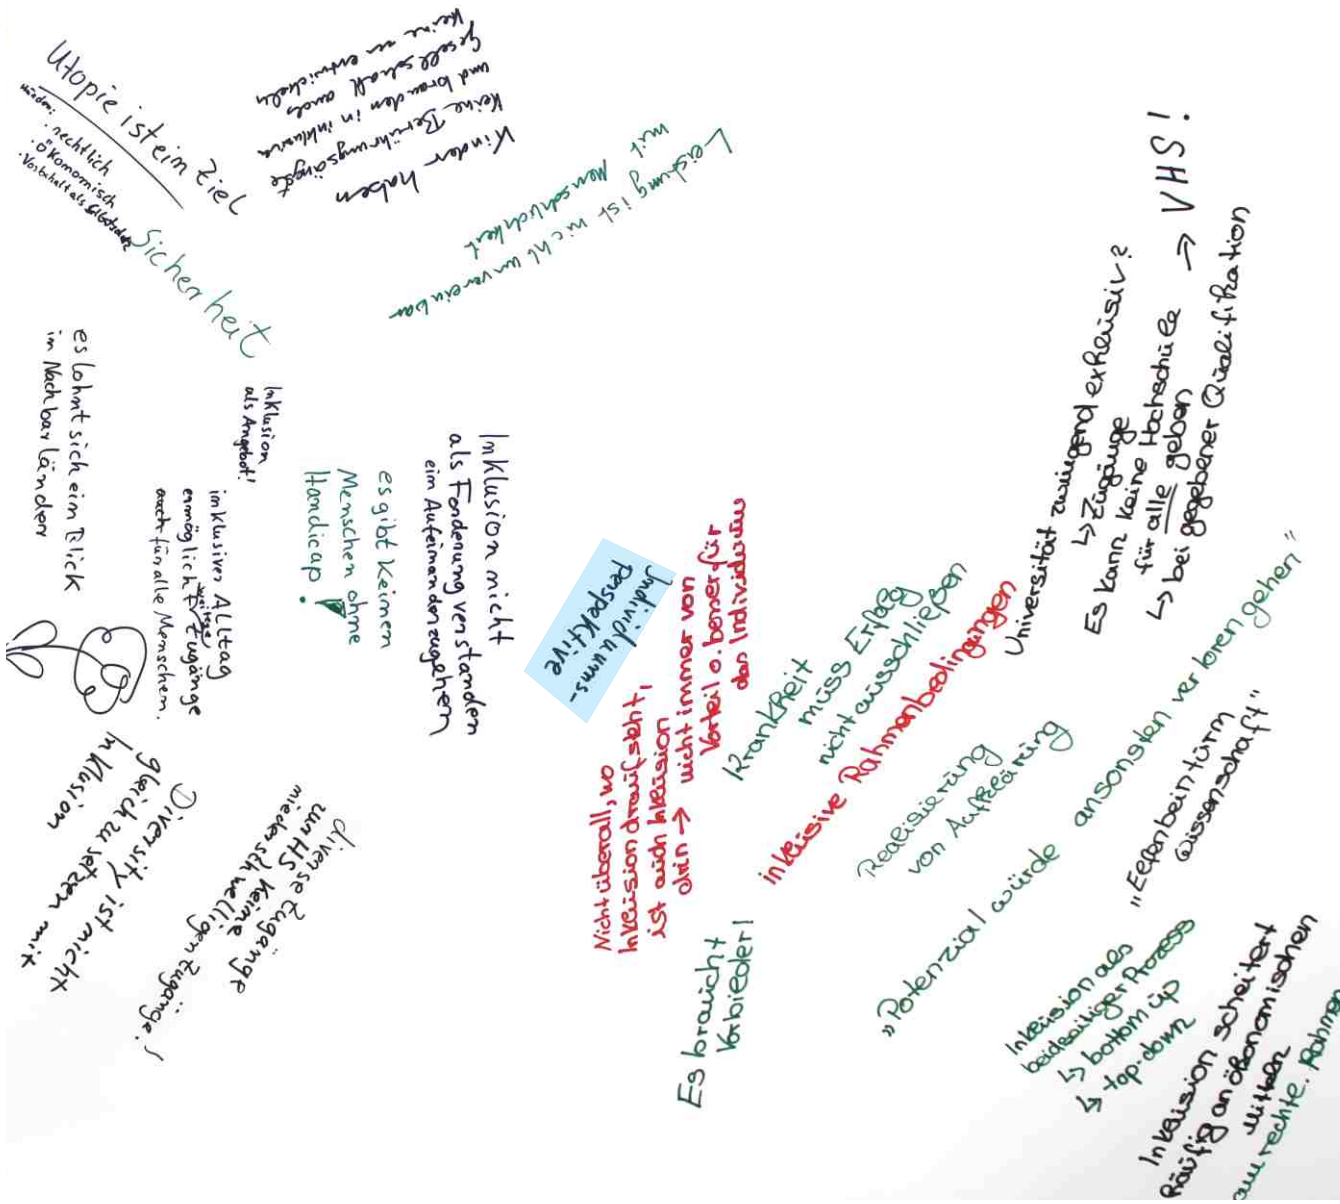 Utopie ist ein Ziel
Hürden:
· rechtlich
· ökonomisch
· Vorbehalt als Selbstschutz
Kinder haben
keine Berührungsängste
und brauchen in inklusiver
Gesellschaft auch
keine zu entwickeln
Leistung ist nicht unvereinbar
mit Menschlichkeit
Sicherheit
es lohnt sich ein Blick
im Nachbarländern
Inklusion
als Angebot!
inklusiver Alltag
ermöglicht
weitere Zugänge
auch für alle Menschen.
es gibt keinen
Menschen ohne
Handicap!
Inklusion nicht
als Forderung verstanden
ein Aufeinanderzugehen
Individuums-
perspektive
Diversity ist nicht
gleichzusetzen mit
Inklusion
diverse Zugänge
zur HS keine
niederschwelligen Zugänge!
Nicht überall, wo
Inklusion draufsteht,
ist auch Inklusion
drin → nicht immer von
Vorteil o. besser für
das Individuum
Krankheit
muss Erfolg
nicht ausschließen
inklusive Rahmenbedingungen
Universität zwingend exklusiv?
↳ Zugänge
Es kann keine Hochschule
für alle geben → VHS!
↳ bei gegebener Qualifikation
Realisierung
von Aufklärung
„Potenzial würde ansonsten verloren gehen"
„Elfenbeinturm
Wissenschaft"
Es braucht
Vorbilder!
Inklusion als
beidseitiger Prozess
↳ bottom up
↳ top-down
Inklusion scheitert
häufig an ökonomischen
Mitteln
rechtl. Rahmen